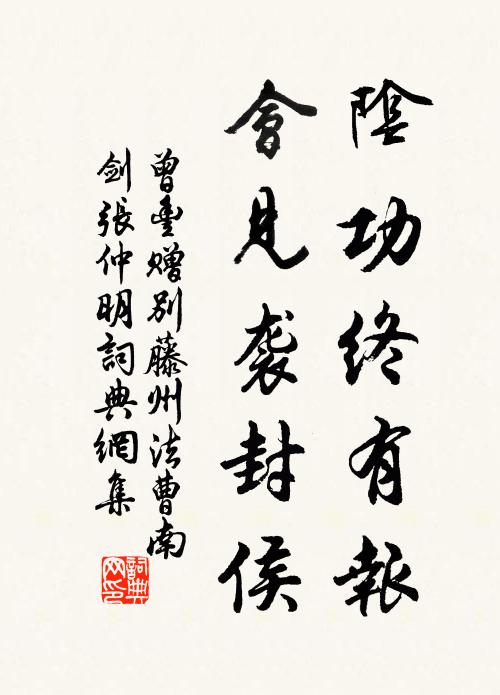 陰功終有報
會見袭封侯
曾豊赠别藤州法曹南
剑張仲明詞典網集
詞典网印